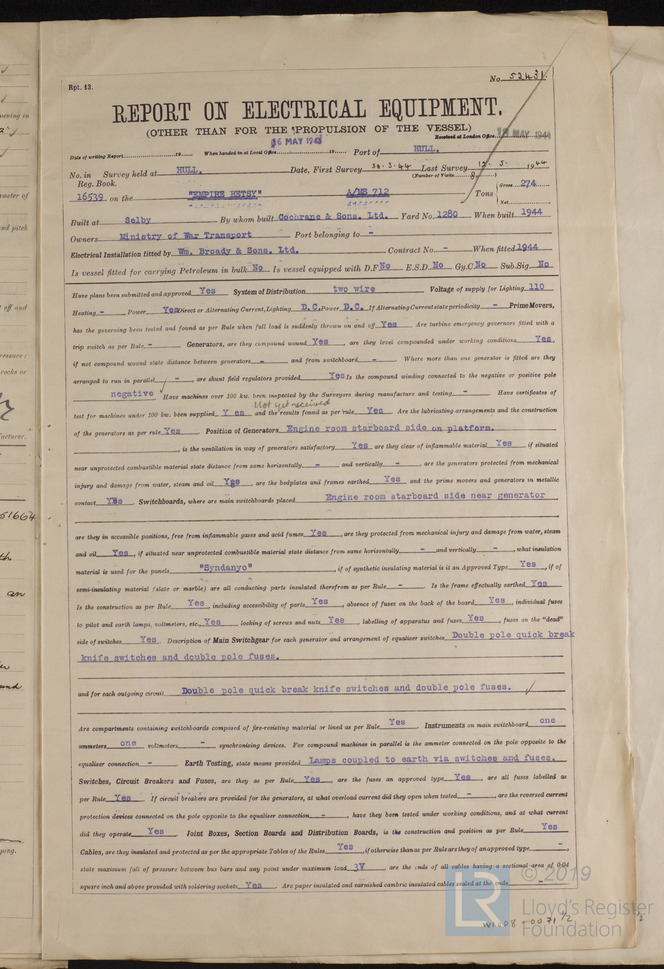 No. 52431.
Rpt. 13.
REPORT ON ELECTRICAL EQUIPMENT.
(OTHER THAN FOR THE PROPULSION OF THE VESSEL)
Received at London Office 18 MAY 1944
16 MAY 1944
Date of writing Report 19 When handed in at Local Office 19 Port of HULL.
No. in Survey held at HULL. Date, First Survey 30-3-44 Last Survey 12-5- 1944
Reg. Book. (Number of Visits 8)
16539 on the "EMPIRE BETSY" A/MS 712 Tons { Gross 274 Net
Built at Selby By whom built Cochrane & Sons. Ltd. Yard No. 1280 When built 1944
Owners Ministry of War Transport Port belonging to -
Electrical Installation fitted by Wm. Broady & Sons. Ltd. Contract No. - When fitted 1944
Is vessel fitted for carrying Petroleum in bulk No Is vessel equipped with D.F. No E.S.D. No Gy.C. No Sub.Sig. No
Have plans been submitted and approved Yes System of Distribution two wire Voltage of supply for Lighting 110
Heating - Power Yes Direct or Alternating Current, Lighting D.C. Power D.C. If Alternating Current state periodicity - Prime Movers,
has the governing been tested and found as per Rule when full load is suddenly thrown on and off Yes Are turbine emergency governors fitted with a
trip switch as per Rule - Generators, are they compound wound Yes, are they level compounded under working conditions Yes,
if not compound wound state distance between generators - and from switchboard - Where more than one generator is fitted are they
arranged to run in parallel -, are shunt field regulators provided Yes Is the compound winding connected to the negative or positive pole
negative Have machines over 100 kw. been inspected by the Surveyors during manufacture and testing - Have certificates of
Not yet received
test for machines under 100 kw. been supplied Yes and the results found as per rule Yes Are the lubricating arrangements and the construction
of the generators as per rule Yes Position of Generators Engine room starboard side on platform.
, is the ventilation in way of generators satisfactory Yes are they clear of inflammable material Yes if situated
near unprotected combustible material state distance from same horizontally - and vertically -, are the generators protected from mechanical
injury and damage from water, steam and oil Yes, are the bedplates and frames earthed Yes and the prime movers and generators in metallic
contact Yes Switchboards, where are main switchboards placed Engine room starboard side near generator
are they in accessible positions, free from inflammable gases and acid fumes Yes, are they protected from mechanical injury and damage from water, steam
and oil Yes, if situated near unprotected combustible material state distance from same horizontally - and vertically -, what insulation
material is used for the panels "Syndanyo", if of synthetic insulating material is it an Approved Type Yes, if of
semi-insulating material (slate or marble) are all conducting parts insulated therefrom as per Rule - Is the frame effectually earthed Yes
Is the construction as per Rule Yes, including accessibility of parts Yes, absence of fuses on the back of the board Yes, individual fuses
to pilot and earth lamps, voltmeters, etc. Yes locking of screws and nuts Yes labelling of apparatus and fuses Yes, fuses on the "dead"
side of switches Yes Description of Main Switchgear for each generator and arrangement of equaliser switches Double pole quick break
knife switches and double pole fuses.
and for each outgoing circuit Double pole quick break knife switches and double pole fuses.
Are compartments containing switchboards composed of fire-resisting material or lined as per Rule Yes Instruments on main switchboard one
ammeters one voltmeters - synchronising devices. For compound machines in parallel is the ammeter connected on the pole opposite to the
equaliser connection - Earth Testing, state means provided Lamps coupled to earth via switches and fuses.
Switches, Circuit Breakers and Fuses, are they as per Rule Yes, are the fuses an approved type Yes, are all fuses labelled as
per Rule Yes If circuit breakers are provided for the generators, at what overload current did they open when tested -, are the reversed current
protection devices connected on the pole opposite to the equaliser connection -, have they been tested under working conditions, and at what current
did they operate Yes Joint Boxes, Section Boards and Distribution Boards, is the construction and position as per Rule Yes
Cables, are they insulated and protected as per the appropriate Tables of the Rules Yes, if otherwise than as per Rule are they of an approved type -
state maximum fall of pressure between bus bars and any point under maximum load 3V, are the ends of all cables having a sectional area of 0.04
square inch and above provided with soldering sockets Yes Are paper insulated and varnished cambric insulated cables sealed at the ends -
© 2019
LR
Lloyd's Register
Foundation
W1008-0071 1/2
51664
th
an